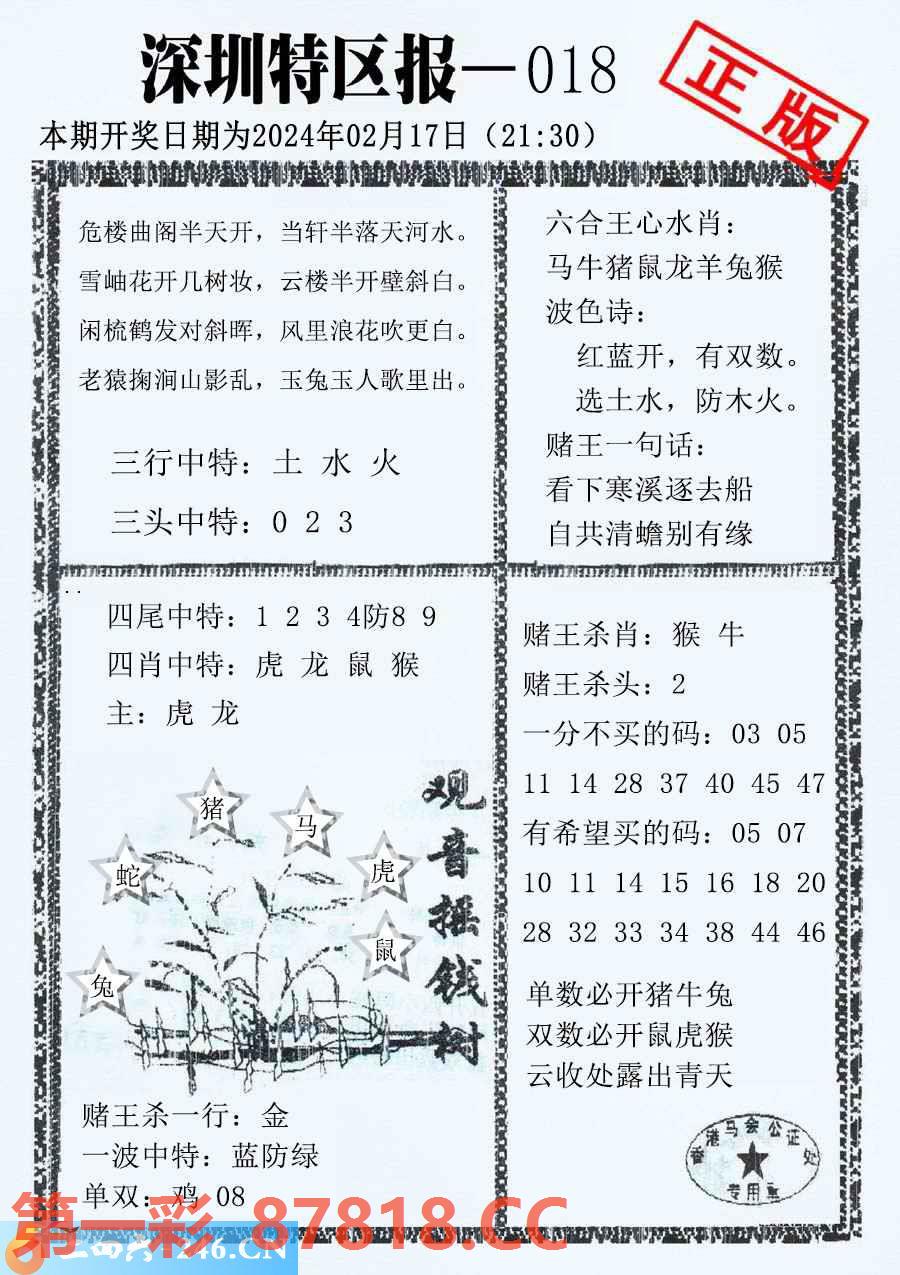 深圳特区报—018
正版
本期开奖日期为2024年02月17日（21:30）
危楼曲阁半天开，当轩半落天河水。
雪岫花开几树妆，云楼半开壁斜白。
闲梳鹤发对斜晖，风里浪花吹更白。
老猿掬涧山影乱，玉兔玉人歌里出。
三行中特：土 水 火
三头中特：0 2 3
六合王心水肖：
马牛猪鼠龙羊兔猴
波色诗：
红蓝开，有双数。
选土水，防木火。
赌王一句话：
看下寒溪逐去船
自共清蟾别有缘
四尾中特：1 2 3 4防8 9
四肖中特：虎 龙 鼠 猴
主：虎 龙
猪
马
蛇
虎
鼠
兔
观音摇钱树
赌王杀一行：金
一波中特：蓝防绿
单双：鸡 08
赌王杀肖：猴 牛
赌王杀头：2
一分不买的码：03 05
11 14 28 37 40 45 47
有希望买的码：05 07
10 11 14 15 16 18 20
28 32 33 34 38 44 46
单数必开猪牛兔
双数必开鼠虎猴
云收处露出青天
香港马会公证处
专用章
第一彩 87818.CC
246.CN